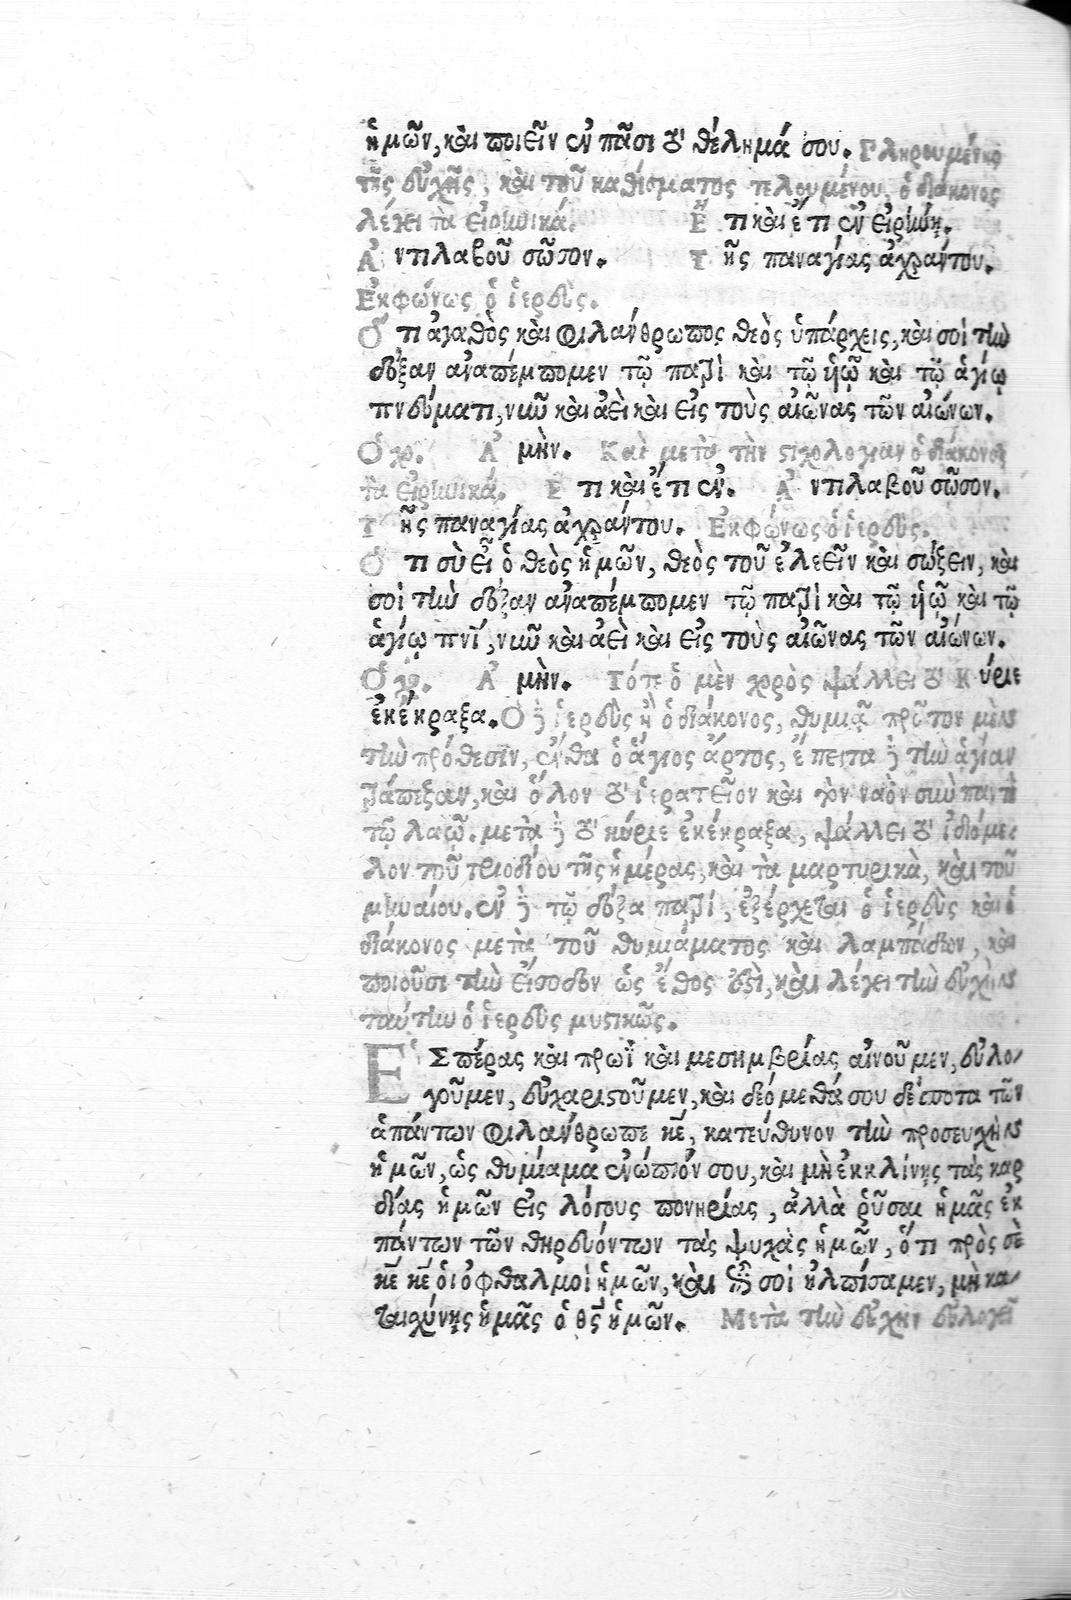 ἡμῶν, καὶ ποιεῖν ἐν πᾶσι τὸ θέλημά σου. Πληρουμένης
τῆς εὐχῆς, καὶ τοῦ καθίσματος τελουμένου, ὁ διάκονος
λέγει τὰ εἰρηνικά. Ἔ τι καὶ ἔτι ἐν εἰρήνῃ.
Ἀ ντιλαβοῦ σῶσον. Τ ῆς παναγίας ἀχράντου.
Ἐκφώνως ὁ ἱερεὺς.
Ὅ τι ἀγαθὸς καὶ φιλάνθρωπος θεὸς ὑπάρχεις, καὶ σοὶ τὴν
δόξαν ἀναπέμπομεν τῷ πατρὶ καὶ τῷ ὑιῷ καὶ τῷ ἁγίῳ
πνεύματι, νῦν καὶ ἀεὶ καὶ εἰς τοὺς αἰῶνας τῶν αἰώνων.
Ὁ χο. Ἀ μὴν. Καὶ μετὰ τὴν στιχολογίαν ὁ διάκονος
τὰ εἰρηνικά. Ἔ τι καὶ ἔτι ἐν. Ἀ ντιλαβοῦ σῶσον.
Τ ῆς παναγίας ἀχράντου. Ἐκφώνως ὁ ἱερεὺς.
Ὅ τι σὺ εἶ ὁ θεὸς ἡμῶν, θεὸς τοῦ ἐλεεῖν καὶ σώζειν, καὶ
σοὶ τὴν δόξαν ἀναπέμπομεν τῷ πατρὶ καὶ τῷ ὑιῷ καὶ τῷ
ἁγίῳ πνΐ, νῦν καὶ ἀεὶ καὶ εἰς τοὺς αἰῶνας τῶν αἰώνων.
Ὁ χο. Ἀ μὴν. Τότε ὁ μὲν χορὸς ψάλλει τὸ Κ ύριε
ἐκέκραξα. Ὁ δὲ ἱερεὺς ἢ ὁ διάκονος, θυμιᾷ πρῶτον μὲν
τὴν πρόθεσιν, ἔνθα ὁ ἅγιος ἄρτος, ἔπειτα δὲ τὴν ἁγίαν
τράπεζαν, καὶ ὅλον τὸ ἱερατεῖον καὶ τὸν ναὸν σὺν παντὶ
τῷ λαῷ. μετὰ δὲ τὸ κύριε ἐκέκραξα, ψάλλει τὸ ἰδιόμε
λον τοῦ τριοδίου τῆς ἡμέρας, καὶ τὰ μαρτυρικὰ, καὶ τοῦ
μηναίου. ἐν δὲ τῷ δόξα πατρί, ἐξέρχεται ὁ ἱερεὺς καὶ ὁ
διάκονος μετὰ τοῦ θυμιάματος καὶ λαμπάδων, καὶ
ποιοῦσι τὴν εἴσοδον ὡς ἔθος ἐστὶ, καὶ λέγει τὴν εὐχὴν
ταύτην ὁ ἱερεὺς μυστικῶς.
Ἑ Σπέρας καὶ πρωῒ καὶ μεσημβρίας αἰνοῦμεν, εὐλο
γοῦμεν, εὐχαριστοῦμεν, καὶ δεόμεθά σου δέσποτα τῶν
ἁπάντων φιλάνθρωπε κε̄, κατεύθυνον τὴν προσευχὴν
ἡμῶν, ὡς θυμίαμα ἐνώπιόν σου, καὶ μὴ ἐκκλίνῃς τὰς καρ
δίας ἡμῶν εἰς λόγους πονηρίας, ἀλλὰ ῥῦσαι ἡμᾶς ἐκ
πάντων τῶν θηρευόντων τὰς ψυχὰς ἡμῶν, ὅτι πρὸς σὲ
κε̄ κε̄ ὁι ὀφθαλμοὶ ἡμῶν, καὶ ἐπὶ σοὶ ἠλπίσαμεν, μὴ κα
ταισχύνῃς ἡμᾶς ὁ θς̄ ἡμῶν. Μετὰ τὴν εὐχὴν εὐλογεῖ